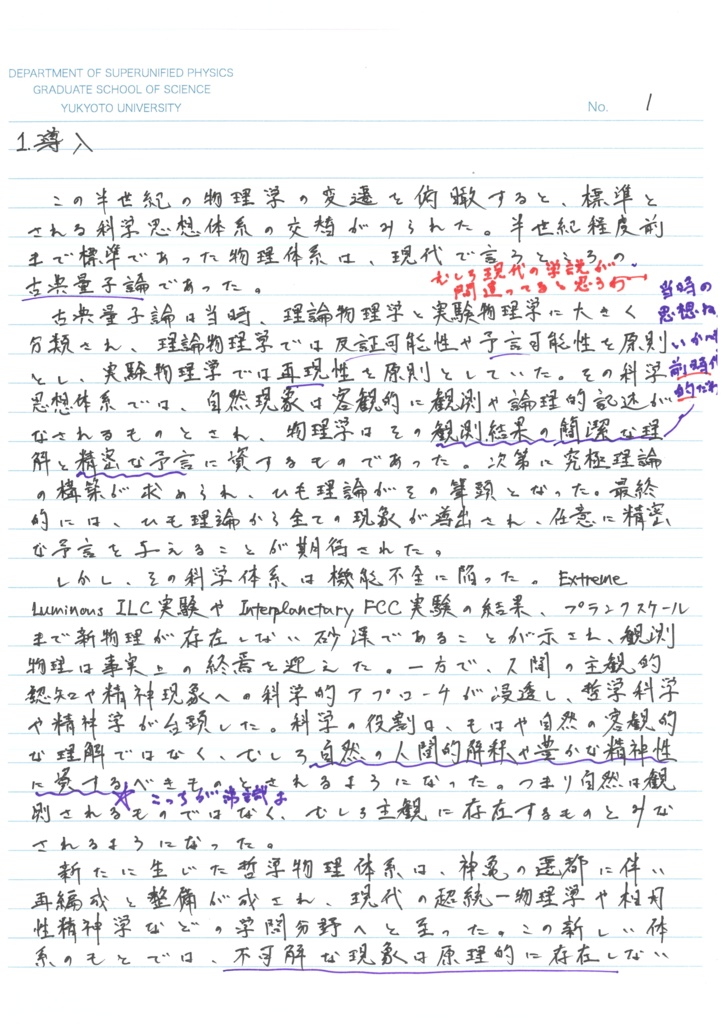 DEPARTMENT OF SUPERUNIFIED PHYSICS
GRADUATE SCHOOL OF SCIENCE
YUKYOTO UNIVERSITY
No. 1
1. 導入
この半世紀の物理学の変遷を俯瞰すると、標準と
される科学思想体系の交替がみられた。半世紀程度前
まで標準であった物理体系は、現代で言うところの
古典量子論であった。
むしろ現代の学説が
間違ってると思うわ
当時の
思想ね
いかに
前時代
的だわ
古典量子論は当時、理論物理学と実験物理学に大きく
分類され、理論物理学では反証可能性や予言可能性を原則
とし、実験物理学では再現性を原則としていた。その科学
思想体系では、自然現象は客観的に観測や論理的記述が
なされるものとされ、物理学はその観測結果の簡潔な理
解と精密な予言に資するものであった。次第に究極理論
の構築が求められ、ひも理論がその筆頭となった。最終
的には、ひも理論から全ての現象が導出され、任意に精密
な予言を与えることが期待された。
しかし、その科学体系は機能不全に陥った。Extreme
Luminous ILC実験やInterplanetary FCC実験の結果、プランクスケール
まで新物理が存在しない砂漠であることが示され、観測
物理は事実上の終焉を迎えた。一方で、人間の主観的
認知や精神現象への科学的アプローチが浸透し、哲学科学
や精神学が台頭した。科学の役割は、もはや自然の客観的
な理解ではなく、むしろ自然の人間的解釈や豊かな精神性
に資するべきものとされるようになった。つまり自然は観
☆こっちが常識よ
測されるものではなく、むしろ主観に存在するものとみな
されるようになった。
新たに生じた哲学物理体系は、神亀の遷都に伴い
再編成と整備が成され、現代の超統一物理学や相対
性精神学などの学問分野へと至った。この新しい体
系のもとでは、不可解な現象は原理的に存在しない